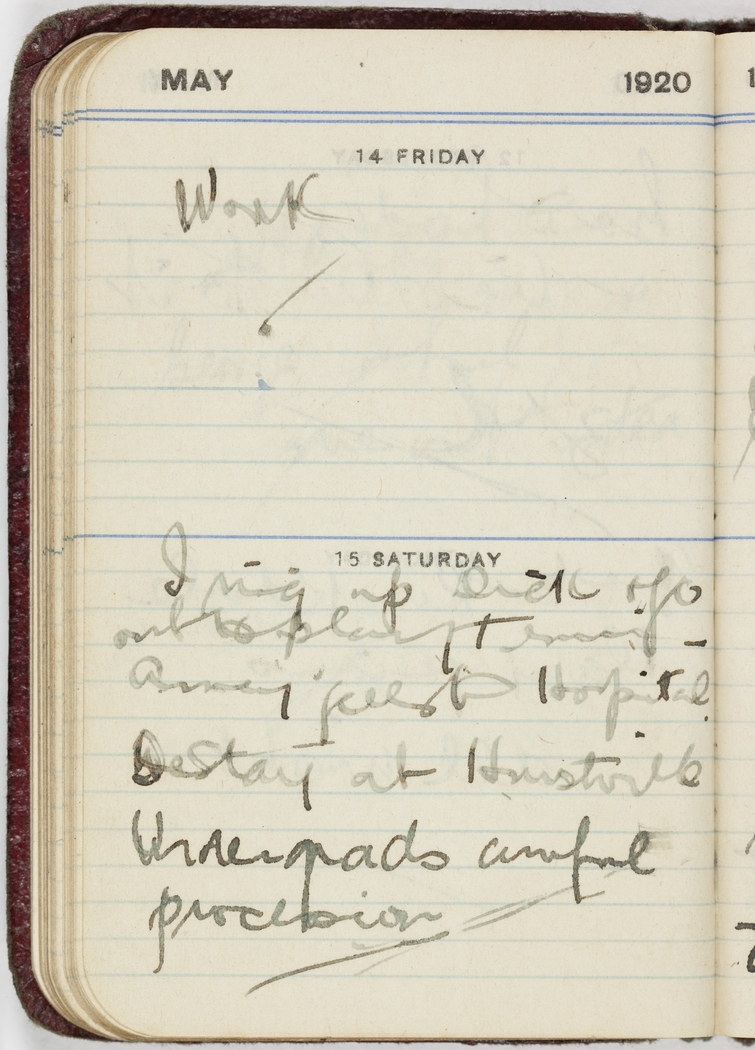 MAY 1920
14 FRIDAY
Work
15 SATURDAY
I ring up Dick & go
out to play tennis -
Amey goes to Hospital
We stay at Hurstville
Undergrads awful
procession